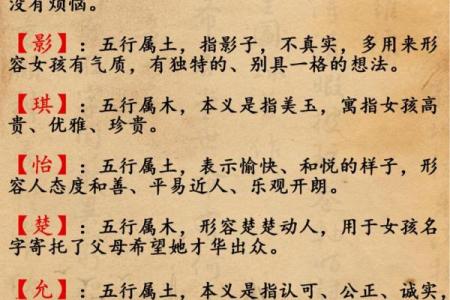 没有烦恼。
【影】：五行属土，指影子，不真实，多用来形
容女孩有气质，有独特的、别具一格的想法。
【琪】：五行属木，本义是指美玉，寓指女孩高
贵、优雅、珍贵。
【怡】：五行属土，表示愉快、和悦的样子，形
容人态度和善、平易近人、乐观开朗。
【楚】：五行属木，形容楚楚动人，用于女孩名
字寄托了父母希望她才华出众。
【允】：五行属土，本意是指认可、公正、诚实，